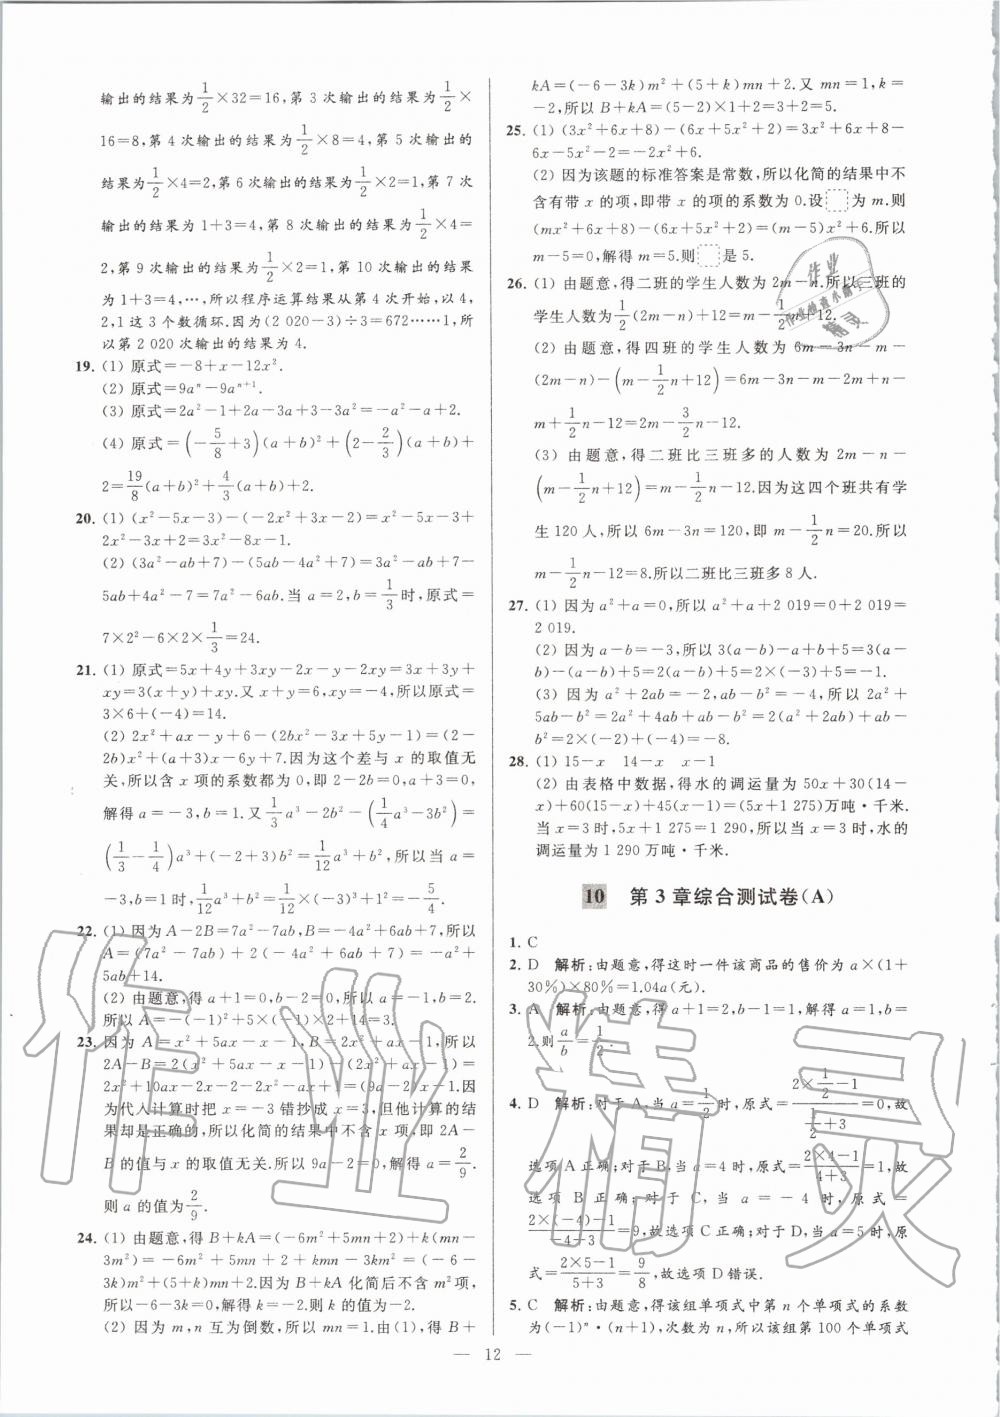 输出的结果为1/2×32=16,第 3 次输出的结果为1/2×
16=8,第 4 次输出的结果为1/2×8=4,第 5 次输出的
结果为1/2×4=2,第 6 次输出的结果为1/2×2=1,第 7 次
输出的结果为 1+3=4,第 8 次输出的结果为1/2×4=
2,第 9 次输出的结果为1/2×2=1,第 10 次输出的结果
为 1+3=4,…,所以程序运算结果从第 4 次开始,以 4,
2,1 这 3 个数循环.因为(2 020-3)÷3=672……1,所
以第 2 020 次输出的结果为 4.
19. (1) 原式=-8+x-12x².
(2) 原式=9aⁿ-9aⁿ⁺¹.
(3) 原式=2a²-1+2a-3a+3-3a²=-a²-a+2.
(4) 原式=(-5/8+3)(a+b)²+(2-2/3)(a+b)+
2=19/8(a+b)²+4/3(a+b)+2.
20. (1) (x²-5x-3)-(-2x²+3x-2)=x²-5x-3+
2x²-3x+2=3x²-8x-1.
(2) (3a²-ab+7)-(5ab-4a²+7)=3a²-ab+7-
5ab+4a²-7=7a²-6ab.当 a=2,b=1/3时,原式=
7×2²-6×2×1/3=24.
21. (1) 原式=5x+4y+3xy-2x-y-2xy=3x+3y+
xy=3(x+y)+xy.又 x+y=6,xy=-4,所以原式=
3×6+(-4)=14.
(2) 2x²+ax-y+6-(2bx²-3x+5y-1)=(2-
2b)x²+(a+3)x-6y+7.因为这个差与 x 的取值无
关,所以含 x 项的系数都为 0,即 2-2b=0,a+3=0,
解得 a=-3,b=1.又1/3a³-2b²-(1/4a³-3b²)=
(1/3-1/4)a³+(-2+3)b²=1/12a³+b²,所以当 a=
-3,b=1 时,1/12a³+b²=1/12×(-3)³+1²=-5/4.
22. (1) 因为 A-2B=7a²-7ab,B=-4a²+6ab+7,所以
A=(7a²-7ab)+2(-4a²+6ab+7)=-a²+
5ab+14.
(2) 由题意,得 a+1=0,b-2=0,所以 a=-1,b=2.
所以 A=-(-1)²+5×(-1)×2+14=3.
23. 因为 A=x²+5ax-x-1,B=2x²+ax-1,所以
2A-B=2(x²+5ax-x-1)-(2x²+ax-1)=
2x²+10ax-2x-2-2x²-ax+1=(9a-2)x-1.因
为代入计算时把 x=-3 错抄成 x=3,但他计算的结
果却是正确的,所以化简的结果中不含 x 项,即 2A-
B 的值与 x 的取值无关.所以 9a-2=0,解得 a=2/9.
则 a 的值为2/9.
24. (1) 由题意,得 B+kA=(-6m²+5mn+2)+k(mn-
3m²)=-6m²+5mn+2+kmn-3km²=(-6-
3k)m²+(5+k)mn+2.因为 B+kA 化简后不含 m²项,
所以-6-3k=0,解得 k=-2.则 k 的值为-2.
(2) 因为 m,n 互为倒数,所以 mn=1.由(1),得 B+
kA=(-6-3k)m²+(5+k)mn+2.又 mn=1,k=
-2,所以 B+kA=(5-2)×1+2=3+2=5.
25. (1) (3x²+6x+8)-(6x+5x²+2)=3x²+6x+8-
6x-5x²-2=-2x²+6.
(2) 因为该题的标准答案是常数,所以化简的结果中不
含有带 x 的项,即带 x 的项的系数为 0.设□为 m.则
(mx²+6x+8)-(6x+5x²+2)=(m-5)x²+6.所以
m-5=0,解得 m=5.则□是 5.
26. (1) 由题意,得二班的学生人数为 2m-n.所以三班的
学生人数为1/2(2m-n)+12=m-1/2n+12.
(2) 由题意,得四班的学生人数为 6m-3n-m-
(2m-n)-(m-1/2n+12)=6m-3n-m-2m+n-
m+1/2n-12=2m-3/2n-12.
(3) 由题意,得二班比三班多的人数为 2m-n-
(m-1/2n+12)=m-1/2n-12.因为这四个班共有学
生 120 人,所以 6m-3n=120,即 m-1/2n=20.所以
m-1/2n-12=8.所以二班比三班多 8 人.
27. (1) 因为 a²+a=0,所以 a²+a+2 019=0+2 019=
2 019.
(2) 因为 a-b=-3,所以 3(a-b)-a+b+5=3(a-
b)-(a-b)+5=2(a-b)+5=2×(-3)+5=-1.
(3) 因为 a²+2ab=-2,ab-b²=-4,所以 2a²+
5ab-b²=2a²+4ab+ab-b²=2(a²+2ab)+ab-
b²=2×(-2)+(-4)=-8.
28. (1) 15-x 14-x x-1
(2) 由表格中数据,得水的调运量为 50x+30(14-
x)+60(15-x)+45(x-1)=(5x+1 275)万吨·千米.
当 x=3 时,5x+1 275=1 290,所以当 x=3 时,水的
调运量为 1 290 万吨·千米.
10 第 3 章综合测试卷(A)
1. C
2. D 解析:由题意,得这时一件该商品的售价为 a×(1+
30%)×80%=1.04a(元).
3. A 解析:由题意,得 a+1=2,b-1=1,解得 a=1,b=
2.则a/b=1/2.
4. D 解析:对于 A,当 a=1/2时,原式=(2×1/2-1)/(1/2+3)=0,故
选项 A 正确;对于 B,当 a=4 时,原式=(2×4-1)/(4+3)=1,故
选项 B 正确;对于 C,当 a=-4 时,原式=
(2×(-4)-1)/(-4+3)=9,故选项 C 正确;对于 D,当 a=5 时,原
式=(2×5-1)/(5+3)=9/8,故选项 D 错误.
5. C 解析:由题意,得该组单项式中第 n 个单项式的系数
为(-1)ⁿ·(n+1),次数为 n,所以该组第 100 个单项式
— 12 —
作业精灵
作业
作业检查小帮手
精灵